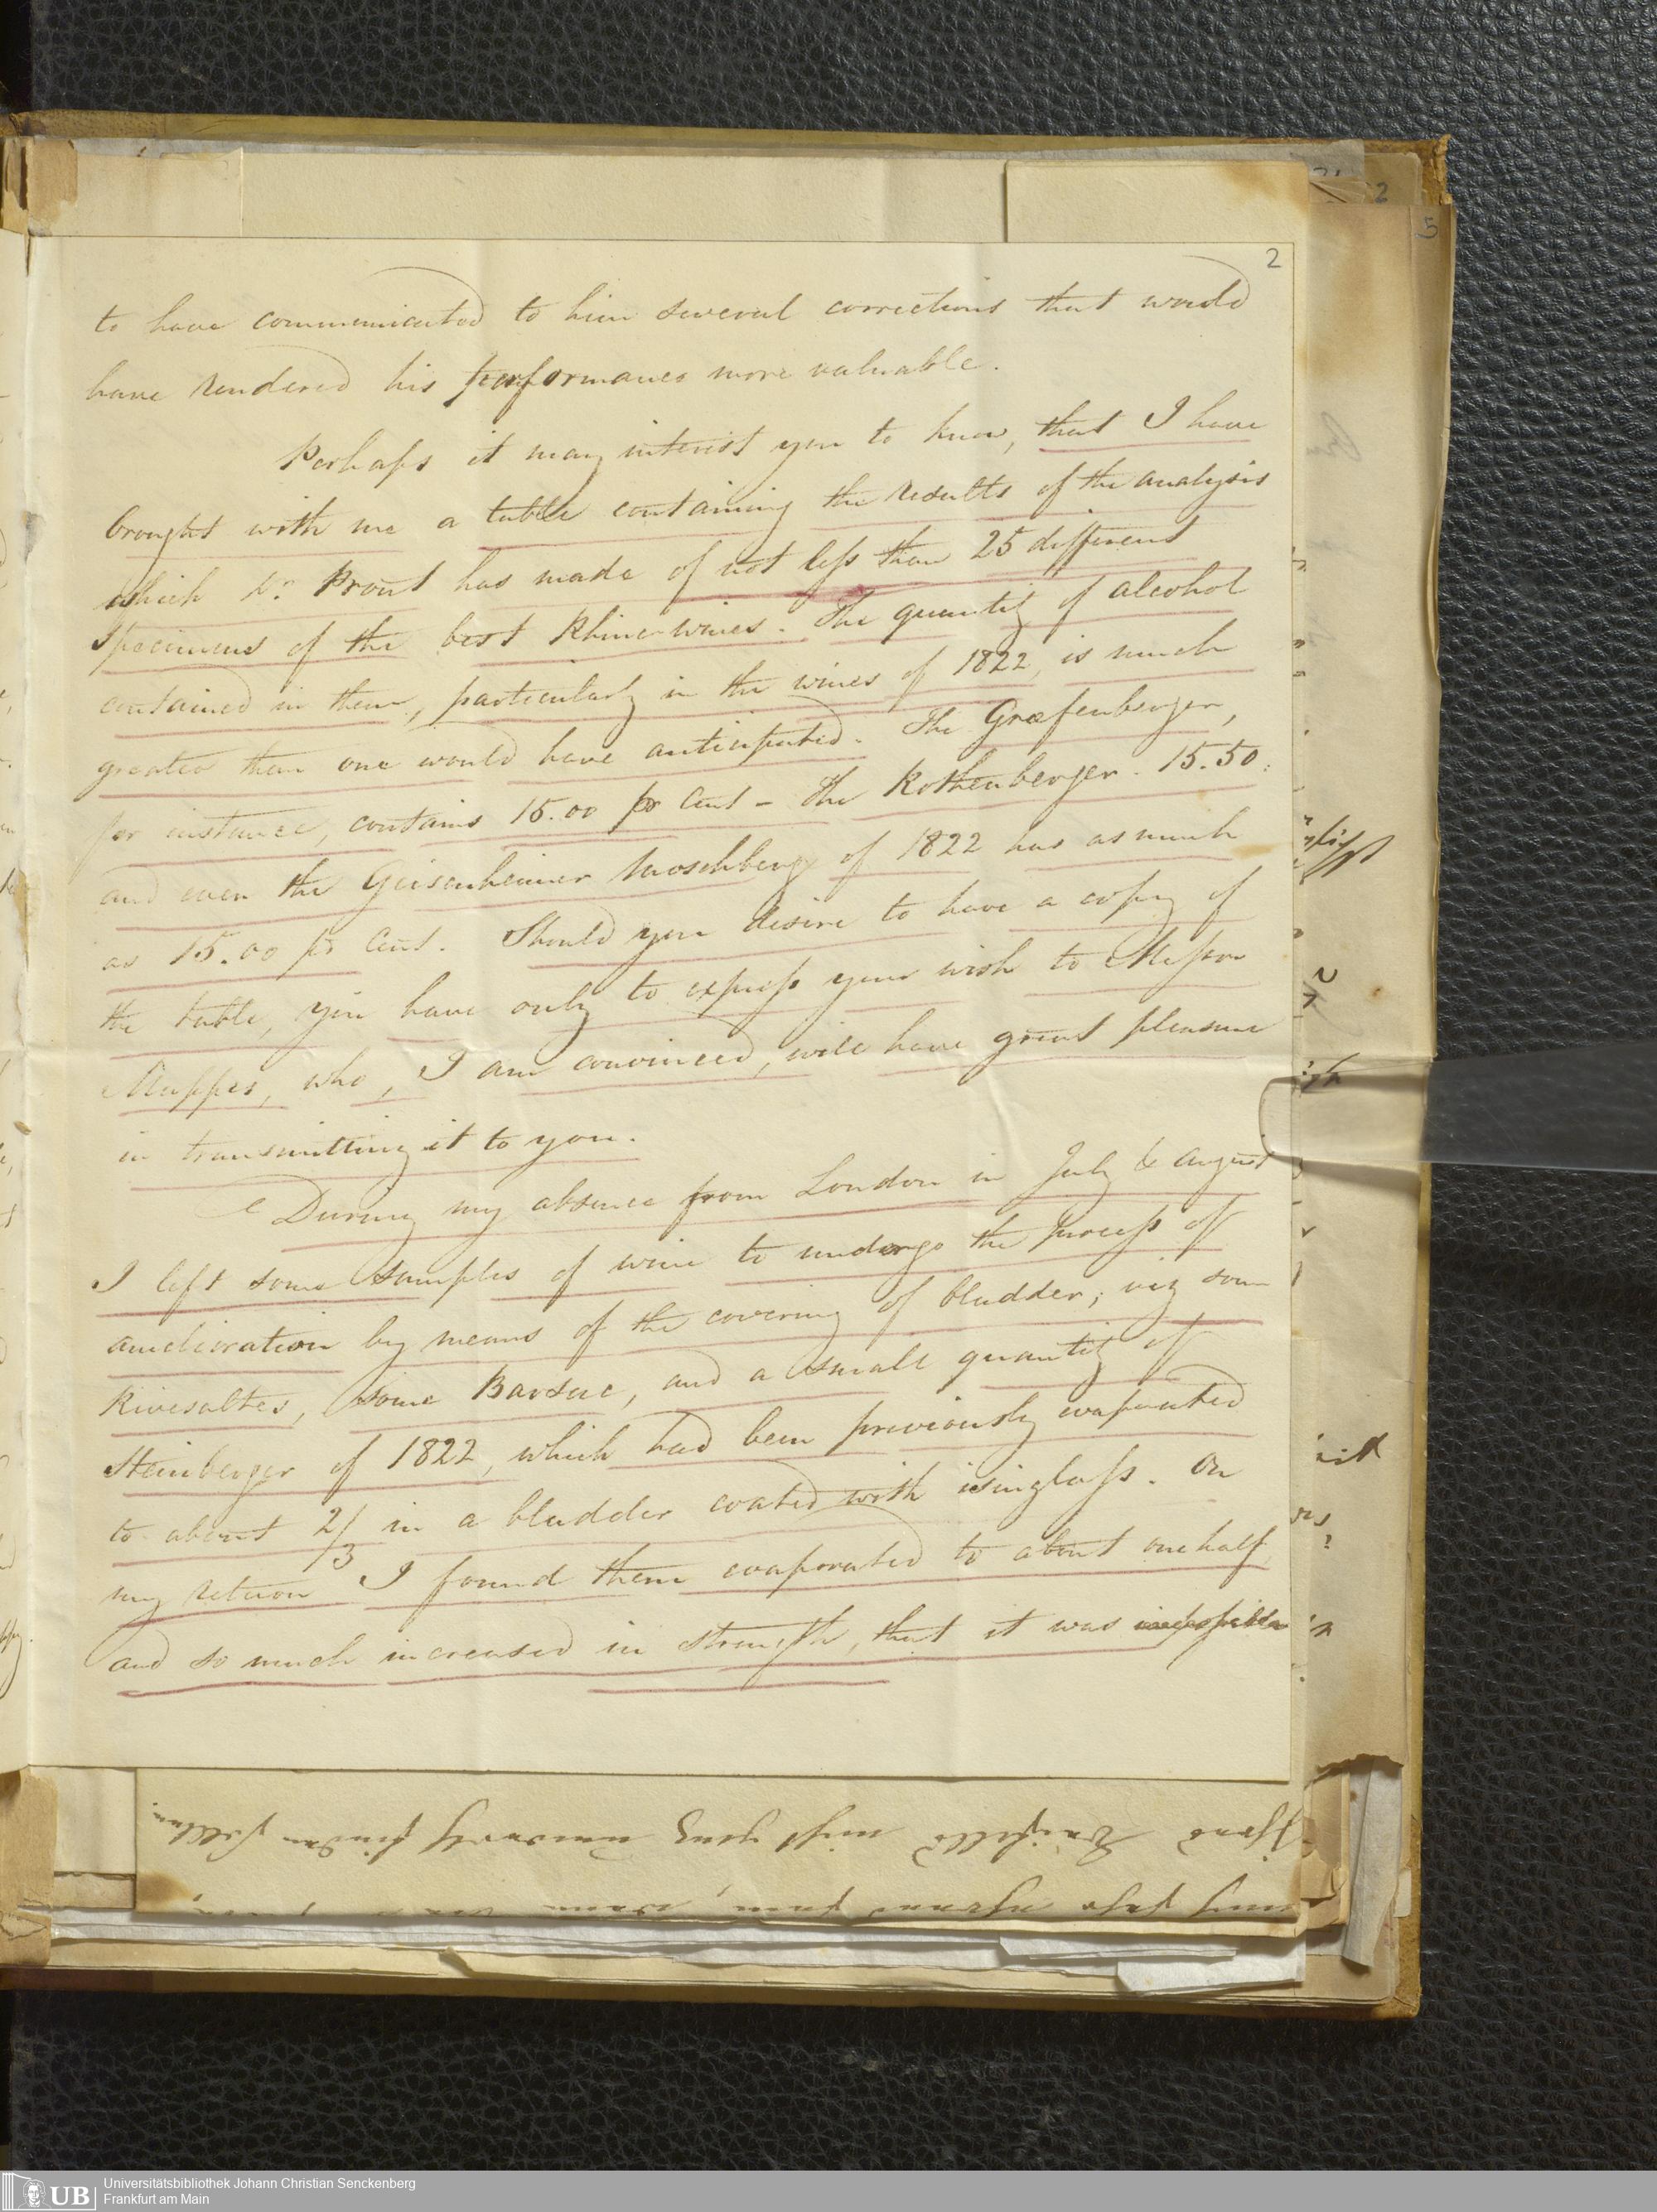 2
to have communicated to him several corrections that would
have rendered his performance more valuable.
Perhaps it may interest you to know, that I have
brought with me a table containing the results of the analysis
which Dr. Prout has made of not less than 25 different
specimens of the best Rhine-wines. The quantity of alcohol
contained in them, particularly in the wines of 1822, is much
greater than one would have anticipated. The Græfenberger,
for instance, contains 15.00 pr Cent – the Rothenberger. 15.50:
and even the Geisenheimer Moschberg of 1822 has as much
as 15.00 pr Cent. Should you desire to have a copy of
the table, you have only to express your wish to Messrs
Mappes, who, I am convinced, will have great pleasure
in transmitting it to you.
During my absence from London in July & August
I left some samples of wine to undergo the process of
amelioration by means of the covering of bladder; viz some
Rivesaltes, some Barsac, and a small quantity of
Steinberger of 1822, which had been previously evaporated
to about 2/3 in a bladder coated with isinglass. On
my return I found them evaporated to about one half,
and so much increased in strength, that it was impossible
2
5
UB
Universitätsbibliothek Johann Christian Senckenberg
Frankfurt am Main